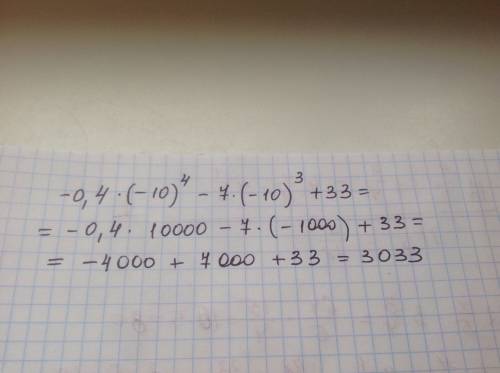 -0,4·(-10)⁴ - 7·(-10)³ + 33 =
= -0,4· 10000 - 7·(-1000) + 33 =
= -4000 + 7000 + 33 = 3033